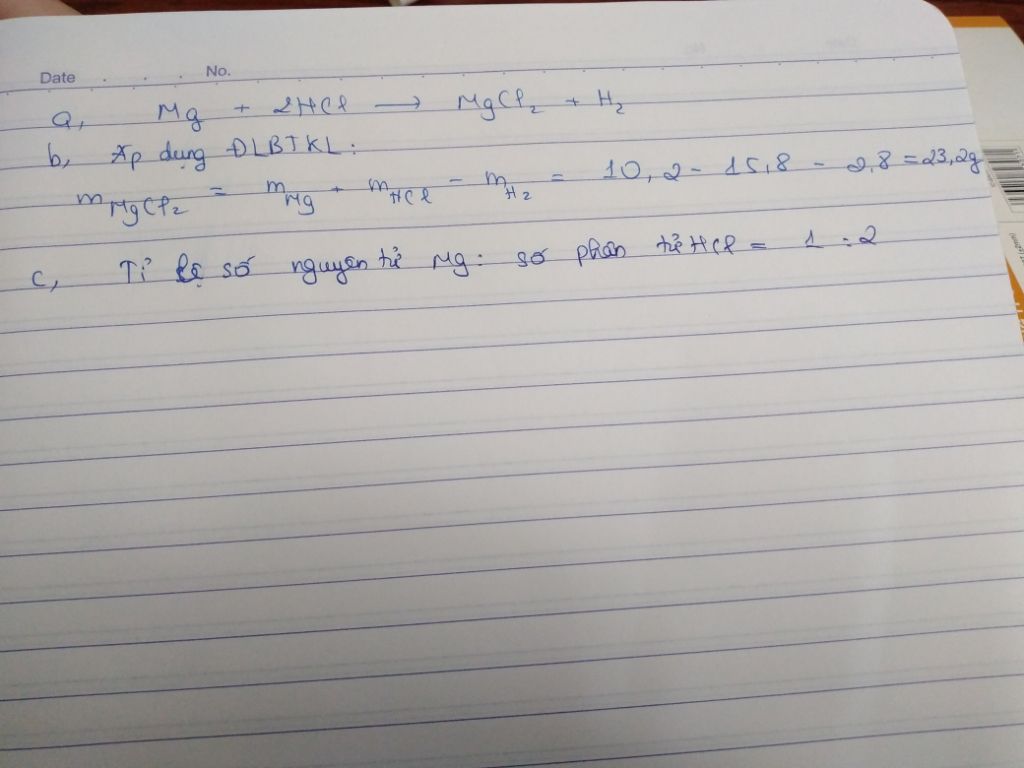 Date . . . No.
a, Mg + 2HCl → MgCl₂ + H₂
b, Áp dụng ĐLBTKL:
m MgCl₂ = m Mg + m HCl - m H₂ = 10,2 - 15,8 - 2,8 = 23,2g
c, Tỉ lệ số nguyên tử Mg : số phân tử HCl = 1 : 2